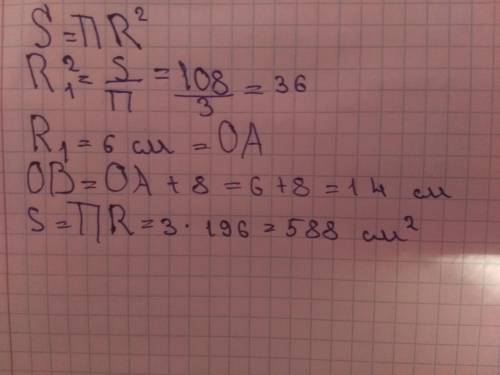 S=ПR²
R₁²= S/П = 108/3 = 36
R₁ = 6 см = OA
OB = OA + 8 = 6 + 8 = 14 см
S = ПR = 3 · 196 = 588 см²